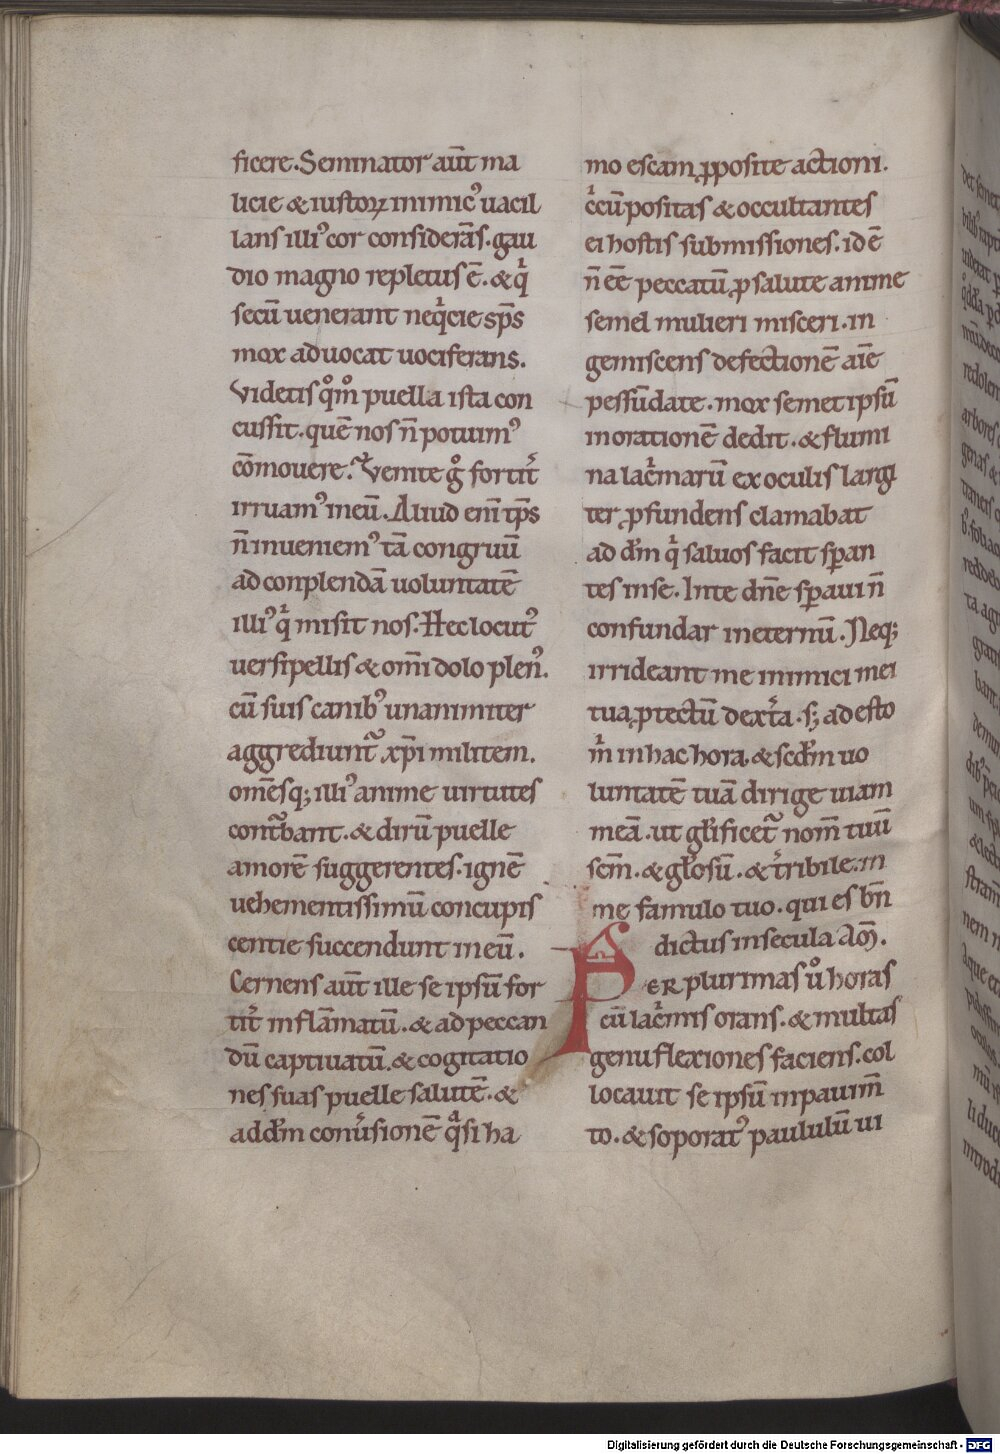 ficere. Seminator aut̄ ma
licie & iustoꝝ inimicꝰ uacil
lans illiꝰ cor considerās. gau
dio magno repletus ē. & qͥ
secū uenerant neqͥcie sp̄s
mox aduocat uociferans.
Videtis qͦm̊ puella ista con
cussit. quē nos n̄ potuimꝰ
cōmouere. Venite gͦ fortit̉
irruamꝰ ineū. Aliud eni̅ tp̄s
n̄ inueniemꝰ tā congruū
ad conplendā uoluntatē
illiꝰ qͥ misit nos. Hec locutꝰ
uersipellis & om̄i dolo plenꝰ.
cū suis canibꝰ unanimiter
aggrediunt᷑ xp̄i militem.
omēsq; illiꝰ anime uirtutes
cont᷑bant. & dirū puelle
amorē suggerentes. ignē
uehementissimū concupis
centie succendunt ineū.
Cernens aut̄ ille se ipsū for
tit̉ inflāmatū. & ad peccan
dū captiuatū. & cogitatio
nes suas puelle salutē. &
ad dm̄ conủsionē qᷓsi ha
mo escam ꝓposite actioni.
c̉cūpositas & occultantes
ei hostis submissiones. id ē
n̄ eē peccatū ꝓ salute anime
semel mulieri misceri. in
gemiscens defectionē aīe
pessūdate. mox semet ipsū
inorationē dedit. & flumi
na lac̉marū ex oculis largi
ter ꝓfundens clamabat
ad dm̄ qͥ saluos facit sꝑan
tes inse. Inte dn̄e sꝑaui n̄
confundar ineternū. Neq;
irrideant me inimici mei
tua ꝓtectū dext̉a. s; adesto
m̉ in hac hora. & scdm̄ uo
luntatē tuā dirige uiam
meā. ut gl̄ificet᷑ nom̄ tuū
scm̄. & gl̄osū. & t̉ribile. in
me famulo tuo. qui es bn̄
dictus insecula. Am̄.
Per plurimas uͦ horas
cū lac̉mis orans. & multas
genuflexiones faciens. col
locauit se ipsū inpauim̄
to. & soporatꝰ paululū ui
Digitalisierung gefördert durch die Deutsche Forschungsgemeinschaft - DFG